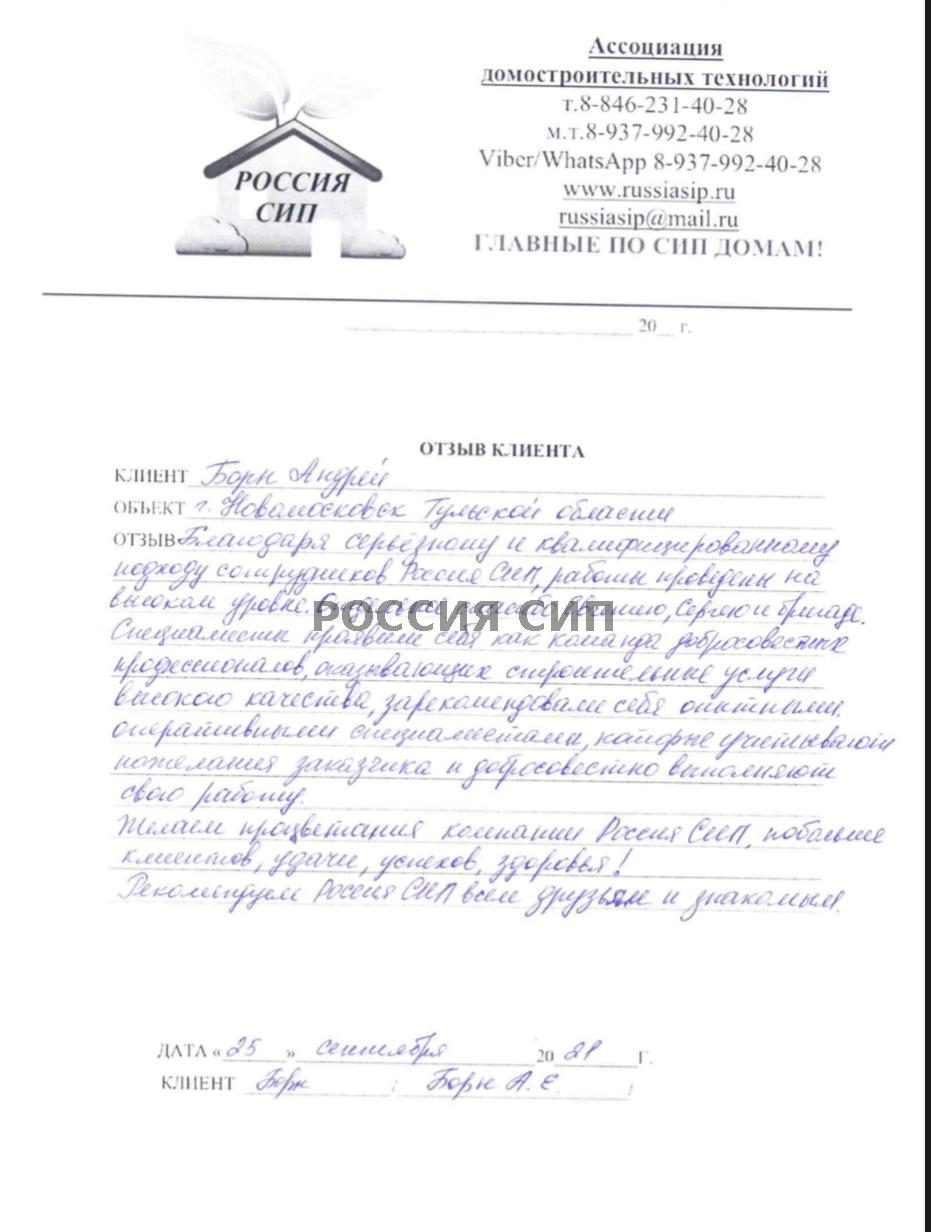 РОССИЯ
СИП
Ассоциация
домостроительных технологий
т.8-846-231-40-28
м.т.8-937-992-40-28
Viber/WhatsApp 8-937-992-40-28
www.russiasip.ru
russiasip@mail.ru
ГЛАВНЫЕ ПО СИП ДОМАМ!
20__ г.
ОТЗЫВ КЛИЕНТА
КЛИЕНТ Борн Андрей
ОБЪЕКТ г. Новомосковск Тульской области
ОТЗЫВ Благодаря серьёзному и квалифицированному
подходу сотрудников Россия СИП, работы проведены на
высоком уровне. Сергею и бригаде.
РОССИЯ СИП
Специалисты проявили себя как команда добросовестных
профессионалов, оказывающих строительные услуги
высокого качества, зарекомендовали себя опытными,
оперативными специалистами, которые учитывают
пожелания заказчика и добросовестно выполняют
свою работу.
Желаем процветания компании Россия СИП, побольше
клиентов, удачи, успехов, здоровья!
Рекомендуем Россия СИП всем друзьям и знакомым.
ДАТА «25» сентября 2021 Г.
КЛИЕНТ Борн / Борн А. Е. /